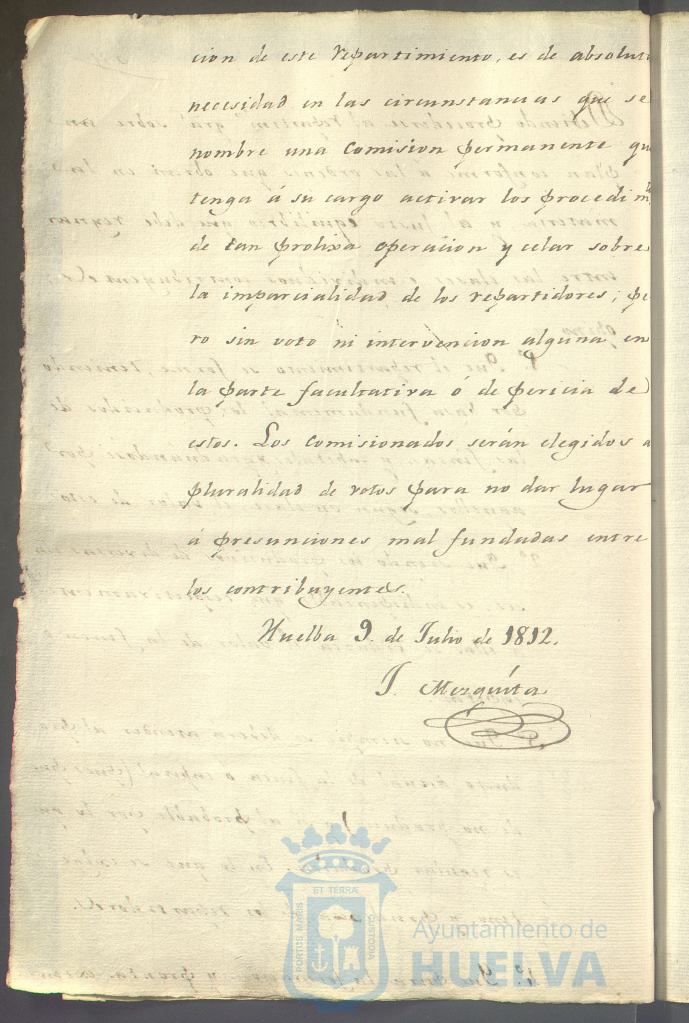 cion de este repartimiento, es de absolut
necesidad en las circunstancias que se
nombre una Comision permanente qu
tenga á su cargo activar los procedim
de tan prolixa operacion y celar sobre
la imparcialidad de los repartidores; pe
ro sin voto ni intervencion alguna en
la parte facultativa ó de pericia de
estos. Los comisionados serán elegidos a
pluralidad de votos para no dar lugar
á presunciones mal fundadas entre
los contribuyentes.
Huelba 9. de Julio de 1812.
J. Mezquita
PORTUS MARIS ET TERRÆ CUSTODIA
Ayuntamiento de
HUELVA